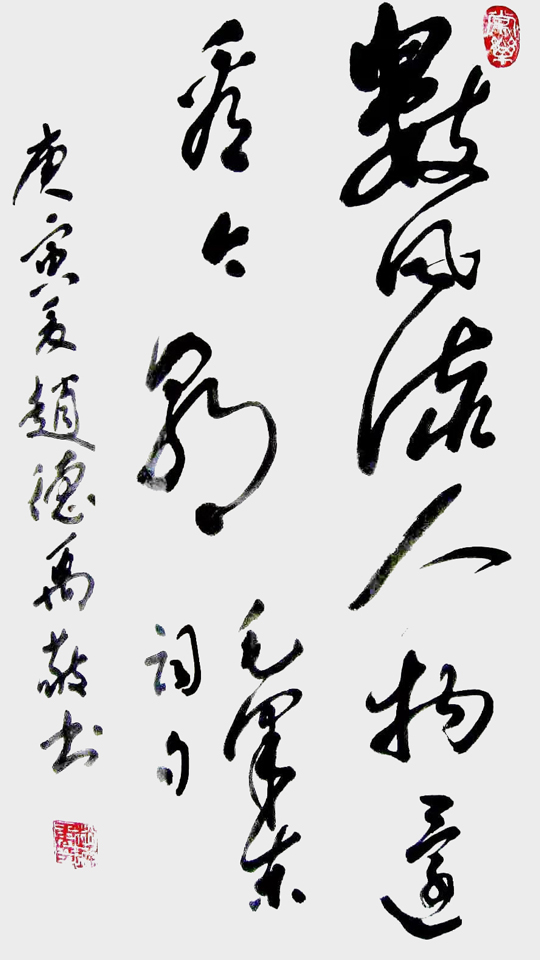 數风流人物還
看今朝
毛澤东
词句
庚寅夏趙德禹敬书